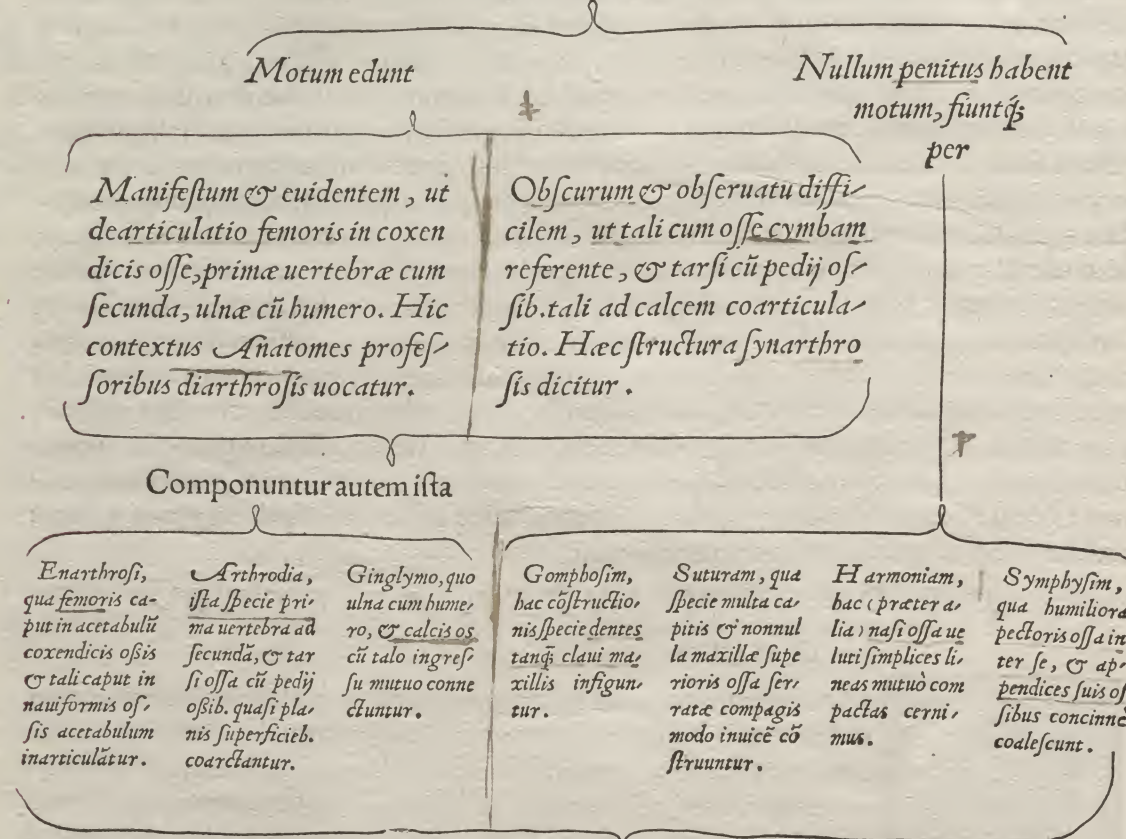 Motum edunt
Nullum penitus habent
motum, fiuntq́;
per
Manifeſtum & euidentem, ut
dearticulatio femoris in coxen
dicis oſſe, primæ uertebræ cum
ſecunda, ulnæ cũ humero. Hic
contextus Anatomes profeſ-
ſoribus diarthroſis uocatur.
Obſcurum & obſeruatu diffi-
cilem, ut tali cum oſſe cymbam
referente, & tarſi cũ pedij oſ-
ſib. tali ad calcem coarticula-
tio. Hæc ſtructura ſynarthro
ſis dicitur.
Componuntur autem iſta
Enarthroſi,
qua femoris ca-
put in acetabulũ
coxendicis oßis
& tali caput in
nauiformis oſ-
ſis acetabulum
inarticulãtur.
Arthrodia,
iſta ſpecie pri-
ma uertebra ad
ſecundã, & tar
ſi oſſa cũ pedij
oßib. quaſi pla-
nis ſuperficieb.
coarctantur.
Ginglymo, quo
ulna cum hume-
ro, & calcis os
cũ talo ingreſ-
ſu mutuo conne
ctuntur.
Gomphoſim,
hac cõſtructio-
nis ſpecie dentes
tanq̃ claui ma-
xillis infigun-
tur.
Suturam, qua
ſpecie multa ca-
pitis & nonnul
la maxillæ ſupe
rioris oſſa ſer-
ratæ compagis
modo inuicẽ cõ
ſtruuntur.
Harmoniam,
hac (præter a-
lia) naſi oſſa ue
luti ſimplices li-
neas mutuò com
pactas cerni-
mus.
Symphyſim,
qua humiliora
pectoris oſſa in
ter ſe, & ap-
pendices ſuis oſ
ſibus concinnè
coaleſcunt.